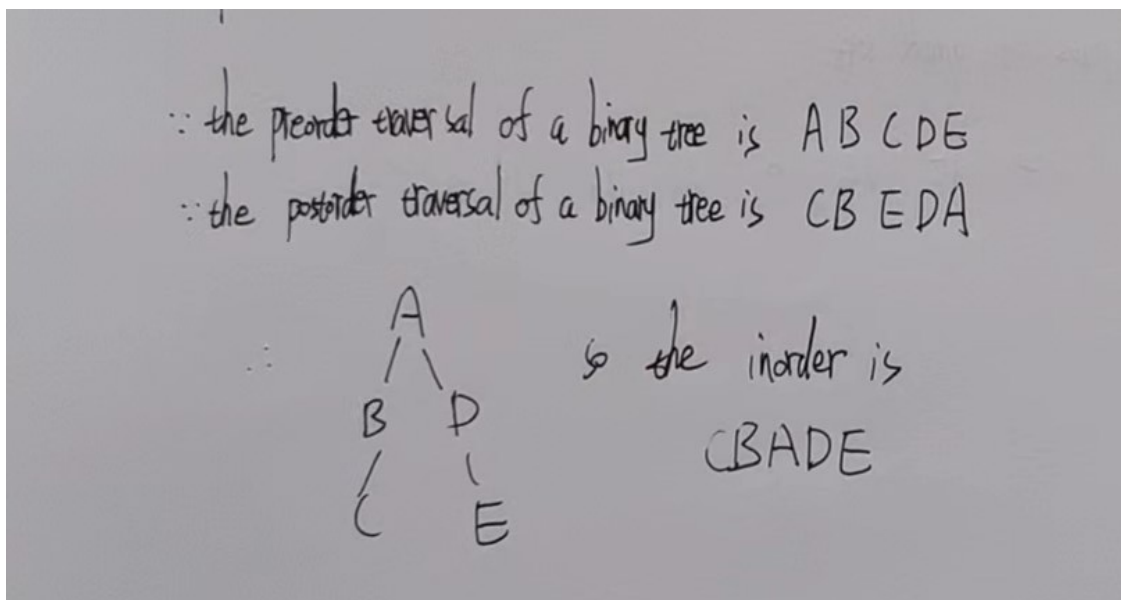 ∵ the preorder traversal of a binary tree is A B C D E
∵ the postorder traversal of a binary tree is C B E D A
∴
A
so the inorder is
B D
CBADE
C E